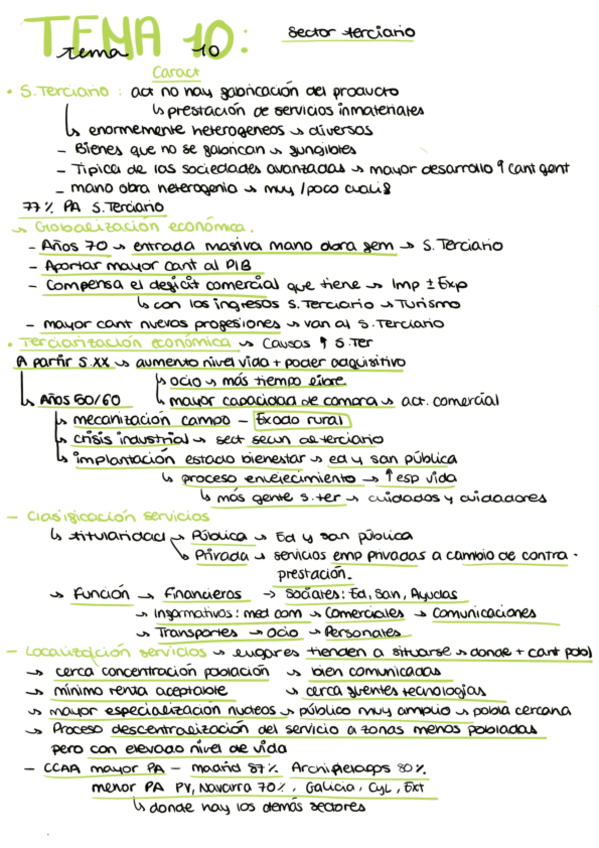 TEMA 10: sector terciario
Tema 10
Caract
• S. Terciario : act no hay fabricación del producto
↳ prestación de servicios inmateriales
↳ enormemente heterogeneos → diversos
- Bienes que no se fabrican → fungibles
- Típica de las sociedades avanzadas → mayor desarrollo ↑ cant gent
- mano obra heterogenia → muy /poco cualif
77% PA S. Terciario
→ Globalización económica.
- Años 70 → entrada masiva mano obra fem → S. Terciario
- Aportar mayor cant al PIB
- Compensa el deficit comercial que tiene → Imp ± Exp
↳ con los ingresos S. Terciario → Turismo
- mayor cant nuevas profesiones → van al S. Terciario
• Terciarización económica → causas ↑ S. Ter
A partir S.XX → aumento nivel vida + poder adquisitivo
↳ ocio → más tiempo libre
↳ Años 50/60 ↳ mayor capacidad de compra → act. comercial
↳ mecanización campo - Éxodo rural
↳ crisis industrial → sect secun al terciario
↳ implantación estado bienestar → ed y san pública
↳ proceso envejecimiento → ↑ esp vida
↳ más gente s. ter → cuidados y cuidadores
- Clasificación servicios
↳ titularidad → Pública → Ed y san pública
↘ Privada → servicios emp privadas a cambio de contra-
prestación.
→ Función → Financieros → Sociales: Ed, San, Ayudas
→ Informativos: med com → Comerciales → Comunicaciones
→ Transportes → ocio → Personales
- Localización servicios → lugares tienden a situarse → donde + cant pobl
→ cerca concentración población → bien comunicadas
→ mínimo renta aceptable → cerca fuentes tecnologías
→ mayor especialización nucleos → público muy amplio → pobla cercana
→ Proceso descentralización del servicio a zonas menos pobladas
pero con elevado nivel de vida
- CCAA mayor PA - madrid 87% Archipielagos 80%
menor PA PV, Navarra 70%, Galicia, CyL, Ext
↳ donde hay los demás sectores